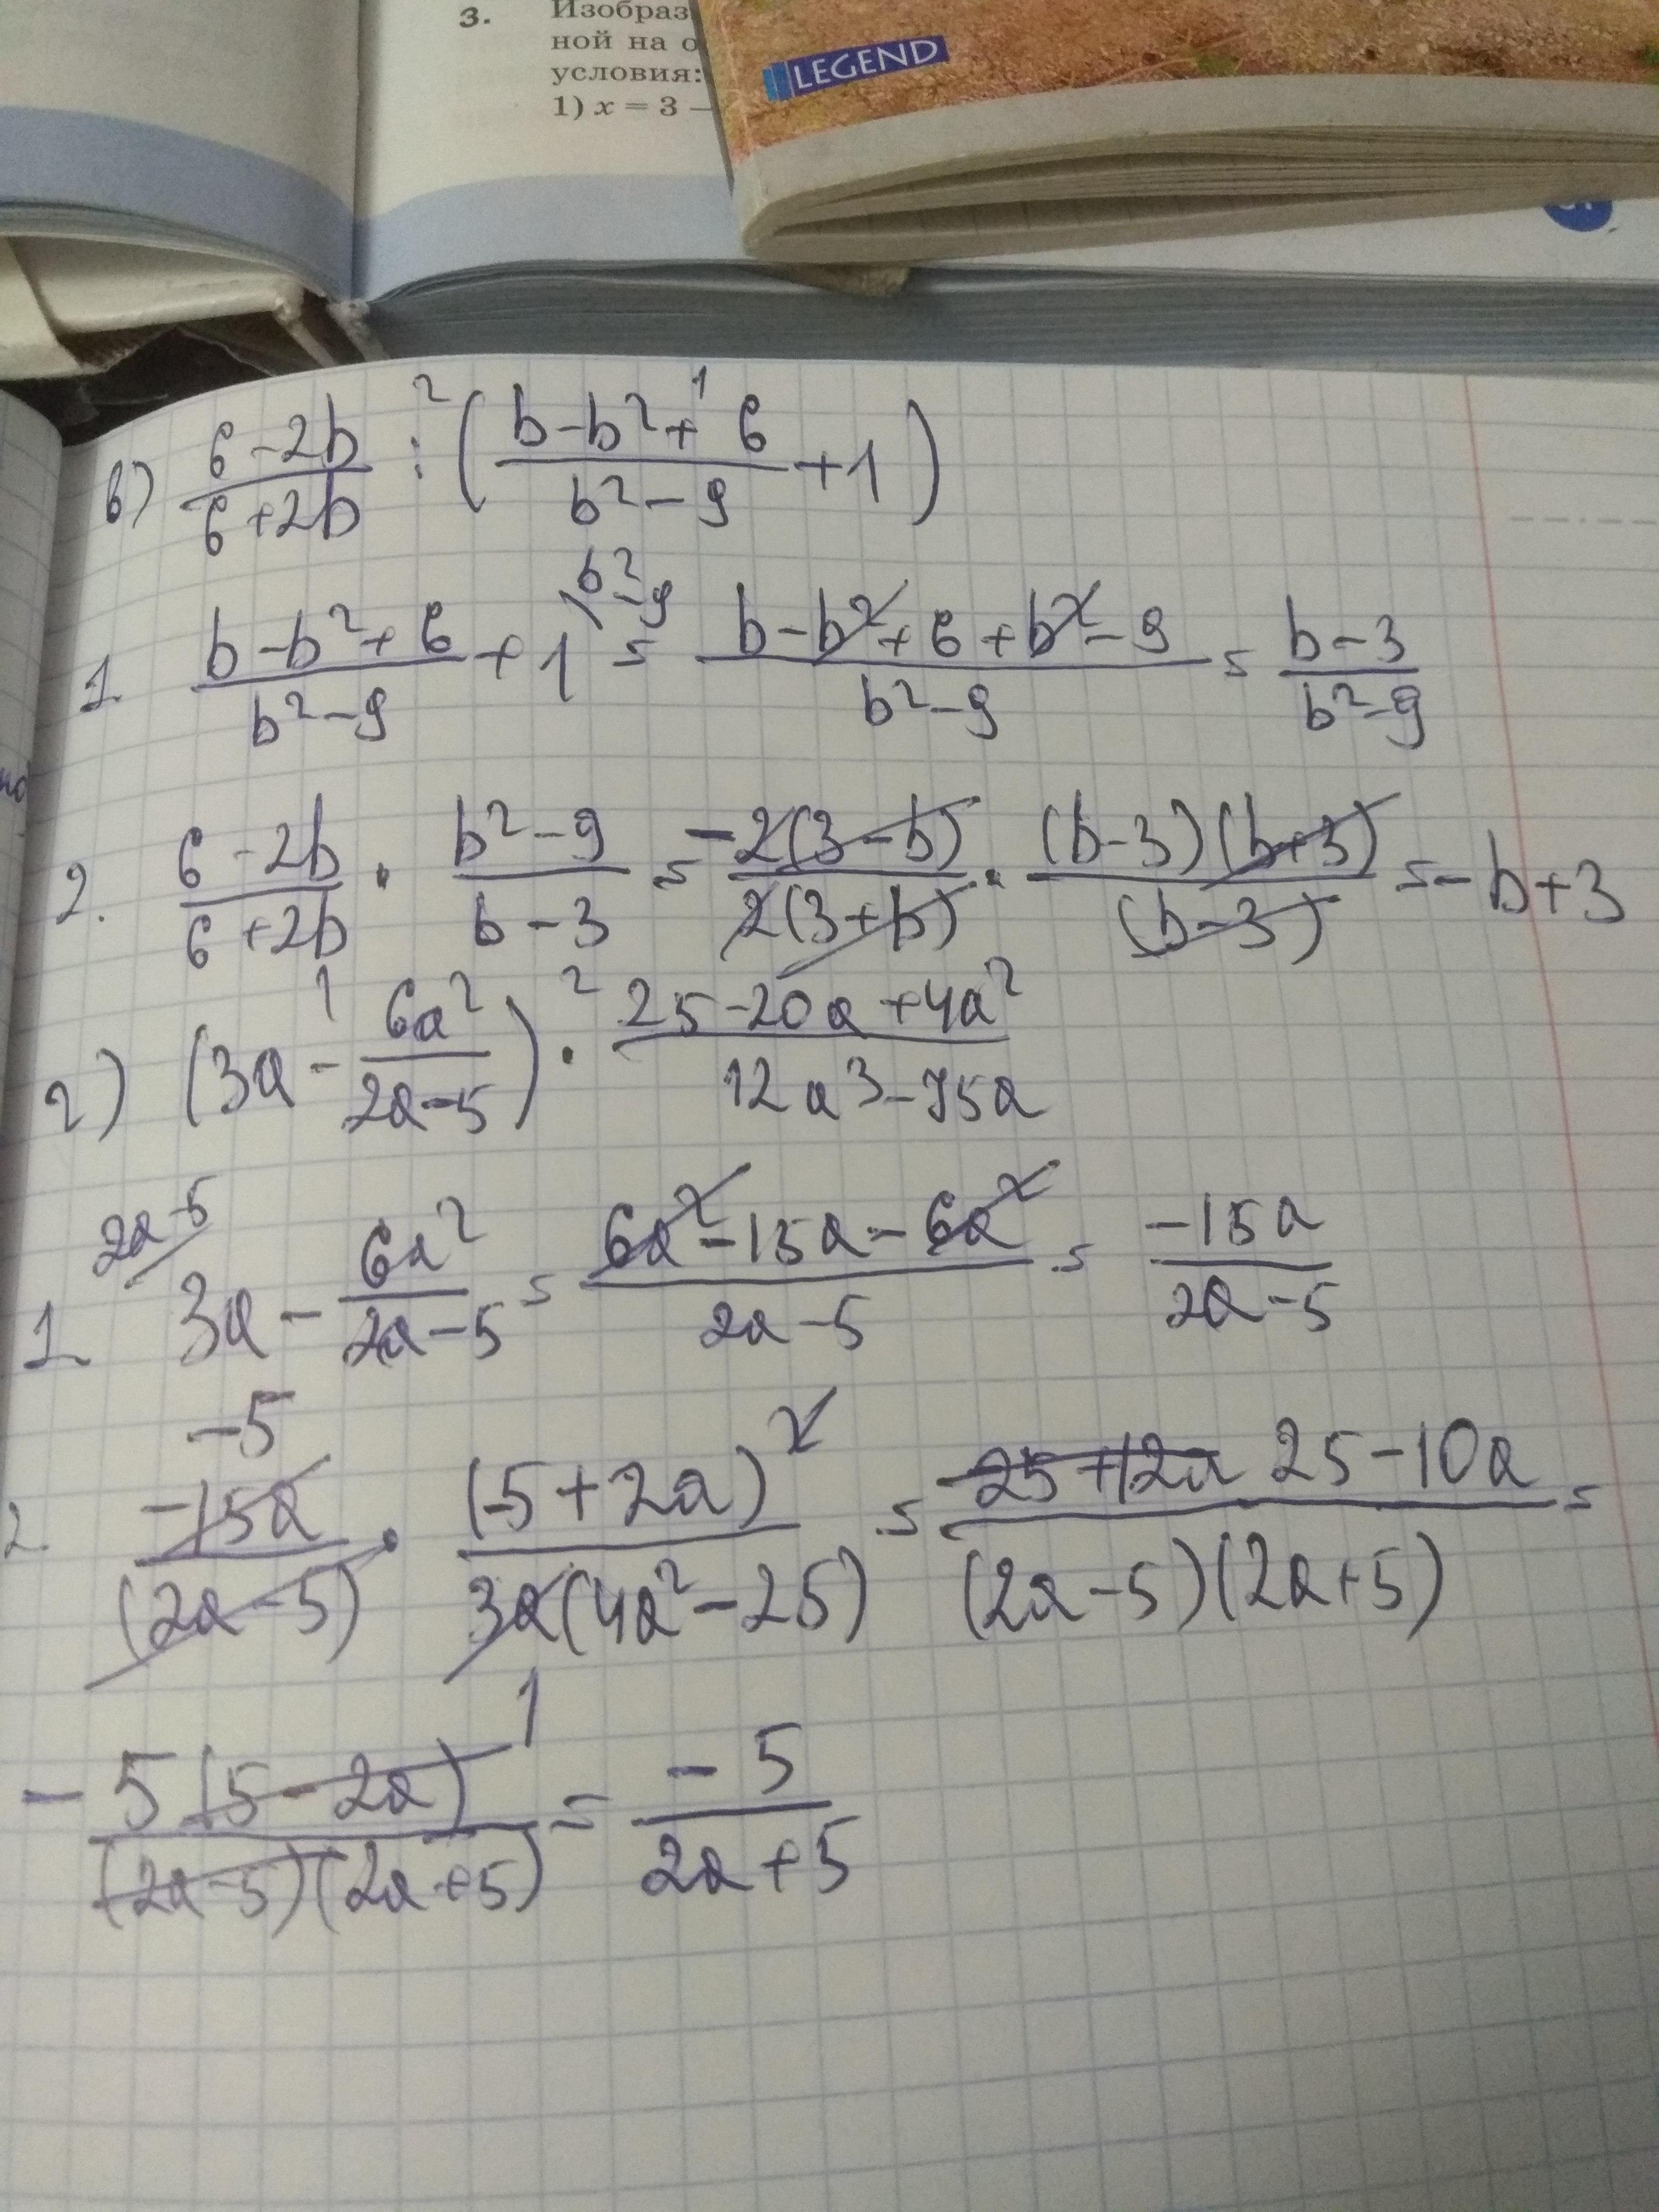 3. Изобраз
ной на о
условия:
1) x = 3 –
LEGEND
в) (6-2b)/(6+2b) :² ((b-b²+6)/(b²-9) +¹ 1)
1. (b-b²+6)/(b²-9) + 1 \b²-9 = (b-b²+6+b²-9)/(b²-9) = (b-3)/(b²-9)
2. (6-2b)/(6+2b) · (b²-9)/(b-3) = -2(3-b)/2(3+b) · (b-3)(b+3)/(b-3) = -b+3
г) (3a -¹ 6a²/(2a-5)) ·² (25-20a+4a²)/(12a³-75a)
1. 2a-5/ 3a - 6a²/(2a-5) = (6a²-15a-6a²)/(2a-5) = -15a/(2a-5)
-5
2. -15a/(2a-5) · (-5+2a)²/3a(4a²-25) = -25+12a 25-10a/(2a-5)(2a+5) =
1
-5(5-2a)/(2a-5)(2a+5) = -5/(2a+5)